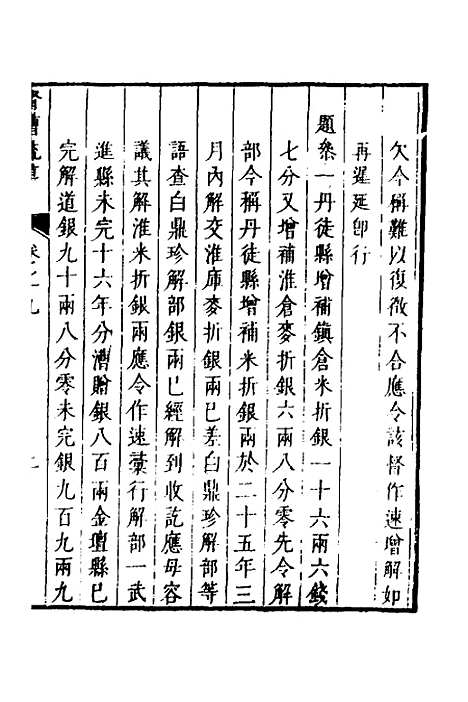 欠今稱難以復徵不合應令該督作速增解如
再遲延卽行
題叅一丹徒縣增補鎮倉米折銀一十六兩六錢
七分又增補淮倉麥折銀六兩八分零先令解
部今稱丹徒縣增補米折銀兩於二十五年三
月內解交淮庫麥折銀兩已差白鼎珍解部等
語查白鼎珍解部銀兩已經解到收訖應毋容
議其解淮米折銀兩應令作速彙行解部一武
進縣未完十六年分漕贈銀八百兩金壇縣已
完解道銀九十兩八分零未完銀九百九兩九
卷之九